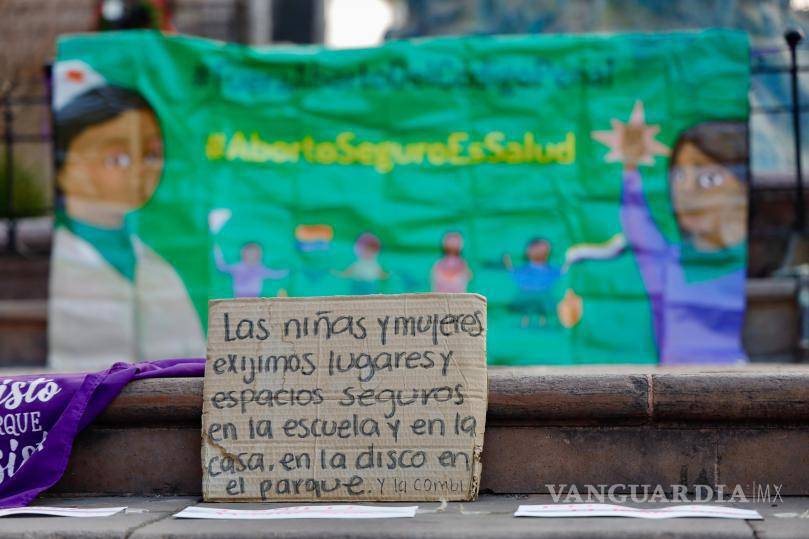 #AbortoSeguroEsSalud
Las niñas y mujeres
exijimos lugares y
espacios seguros
en la escuela y en la
casa, en la disco en
el parque. y la combi
VANGUARDIA|MX